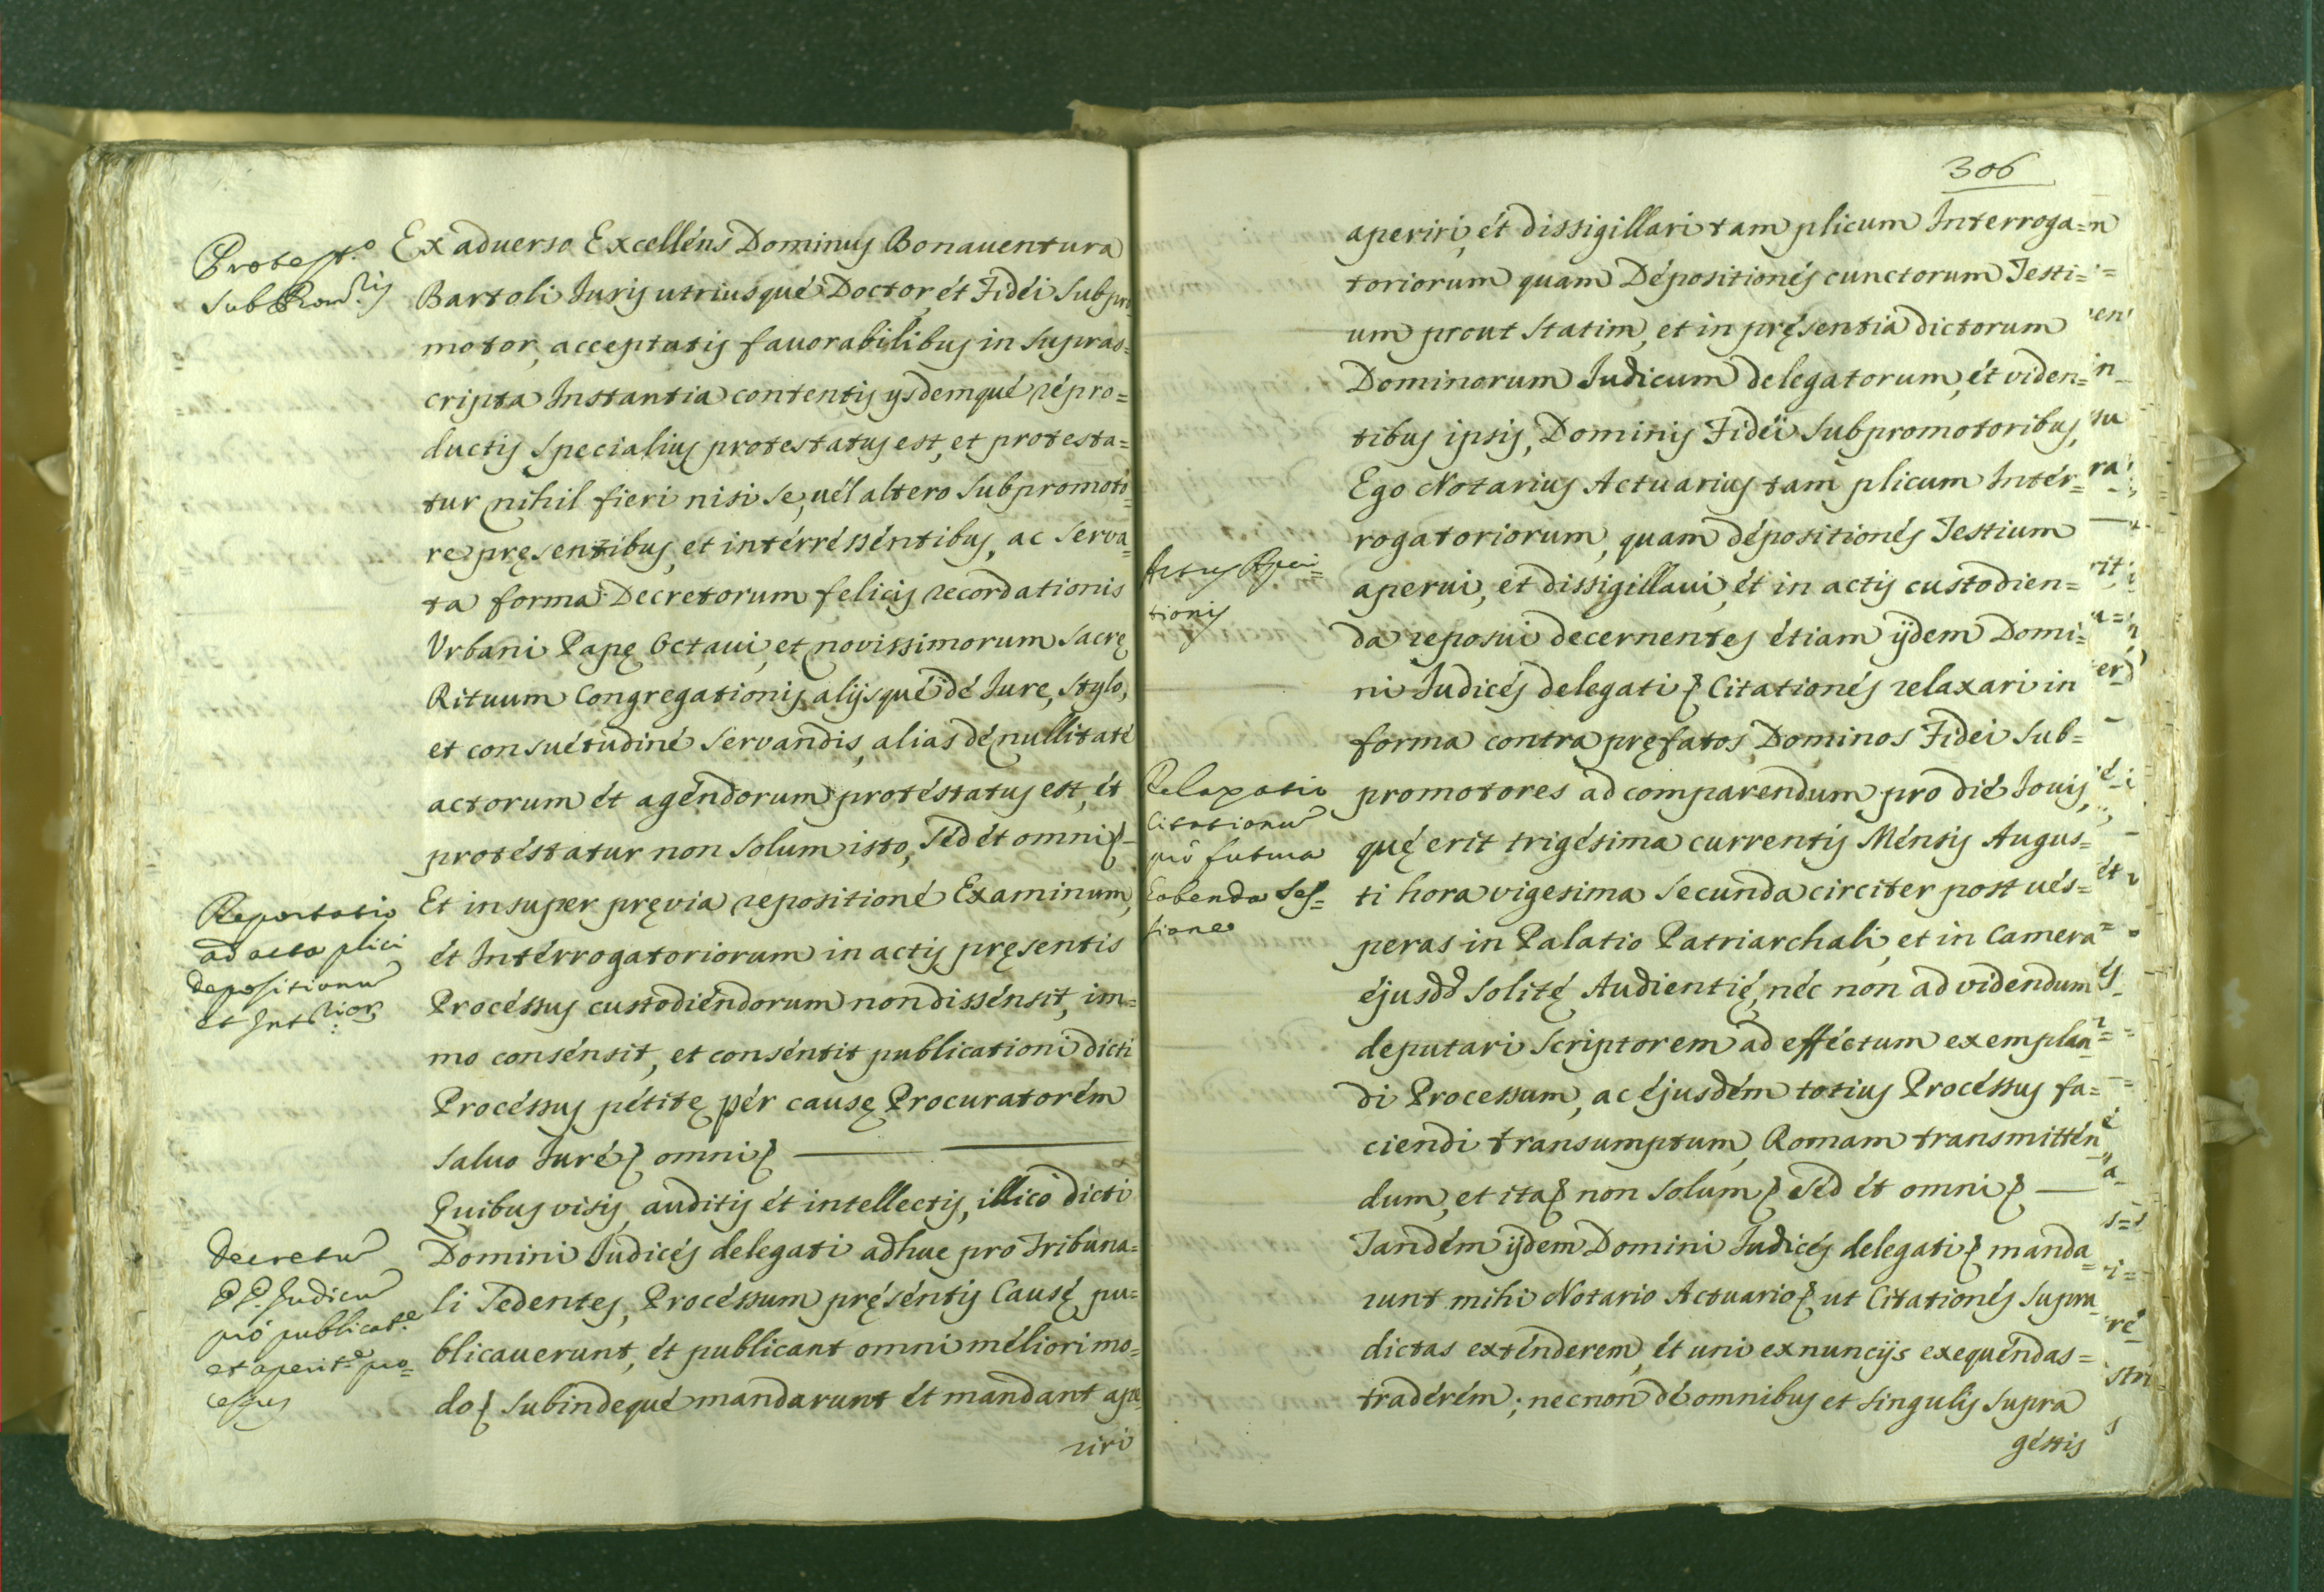 Protest.o
SubProm.ris
Ex aduerso Excellens Dominus Bonauentura
Bartoli Juris utriusqué Doctor, ét Fidéi Subpro
motor, acceptatis fauorabilibus in supras=
cripta Instantia contentis ijsdemqué répro=
ductis specialius protestatus est, et protesta=
tur nihil fieri nisi se, uél altero Subpromoto
re pręsentibus, et intérréssentibus, ac serva=
ta forma Decretorum felicis recordationis
Vrbani Papę Octaui, et novissimorum Sacrę
Rituum Congregationis, alijsqué dé Jure, stylo,
et consuétudiné servandis, alias dé nullitaté
actorum ét agéndorum protéstatus est, ét
protéstatur non solum isto, séd ét omni
Reportatio
ad acta plici
depositionu
et
Et insuper pręvia repositioné Examinum,
ét Intérrogatoriorum in actis pręsentis
Procéssus custodiéndorum non dissénsit, im=
mo consénsit, et conséntit publicationi dicti
Procéssus pétitę pér causę Procuratorém
saluo Juré omni
Quibus visis, auditis ét intellectis, illicò dicti
Decretu
PP. Judicu
pró publicat.e
et aperit.e pro=
cessus
Domini Judicés delegati adhuc pro Tribuna=
li sedentes, Procéssum pręséntis Causę pu=
blicauerunt, ét publicant omni méliori mo=
do subindequé mandarunt ét mandant ape
riri
306
aperiri, ét dissigillari tam plicum Interroga=
toriorum quam Dépositionés cunctorum Testi=
um prout statim, et in pręsentia dictorum
Dominorum Judicum delegatorum, ét viden=
tibus ipsis, Dominis Fidei Subpromotoribus,
Ego Notarius Actuarius tam plicum Intér=
rogatoriorum, quam dépositionés Testium
Actus Aperi=
tionis
aperui, et dissigillaui, ét in actis custodien=
da reposui decernentes étiam ijdem Domi=
ni Judicés delegati Citationés relaxari in
forma contra pręfatos Dominos Fidei Sub=
Relaxatio
Citationu
pró futura
habenda Ses=
sione
promotores ad comparendum pro dié Jouis,
quę erit trigésima currentis Ménsis Augus=
ti hora vigesima secunda circiter post vés=
peras in Palatio Patriarchali, et in Camera
éjusdd solitę Audientię, néc non ad videndum
deputari Scriptorem ad effectum exemplan=
di Processum, ac éjusdém totius Procéssus fa=
ciendi transumptum, Romam transmittén
dum, et ita non solum sed ét omni
Tandém ijdem Domini Judicés delegati manda=
runt mihi Notario Actuario ut Citationés supra
dictas exténderem, ét uni ex nuncijs exequéndas=
tradérém; necnon dé omnibus et singulis supra
géstis